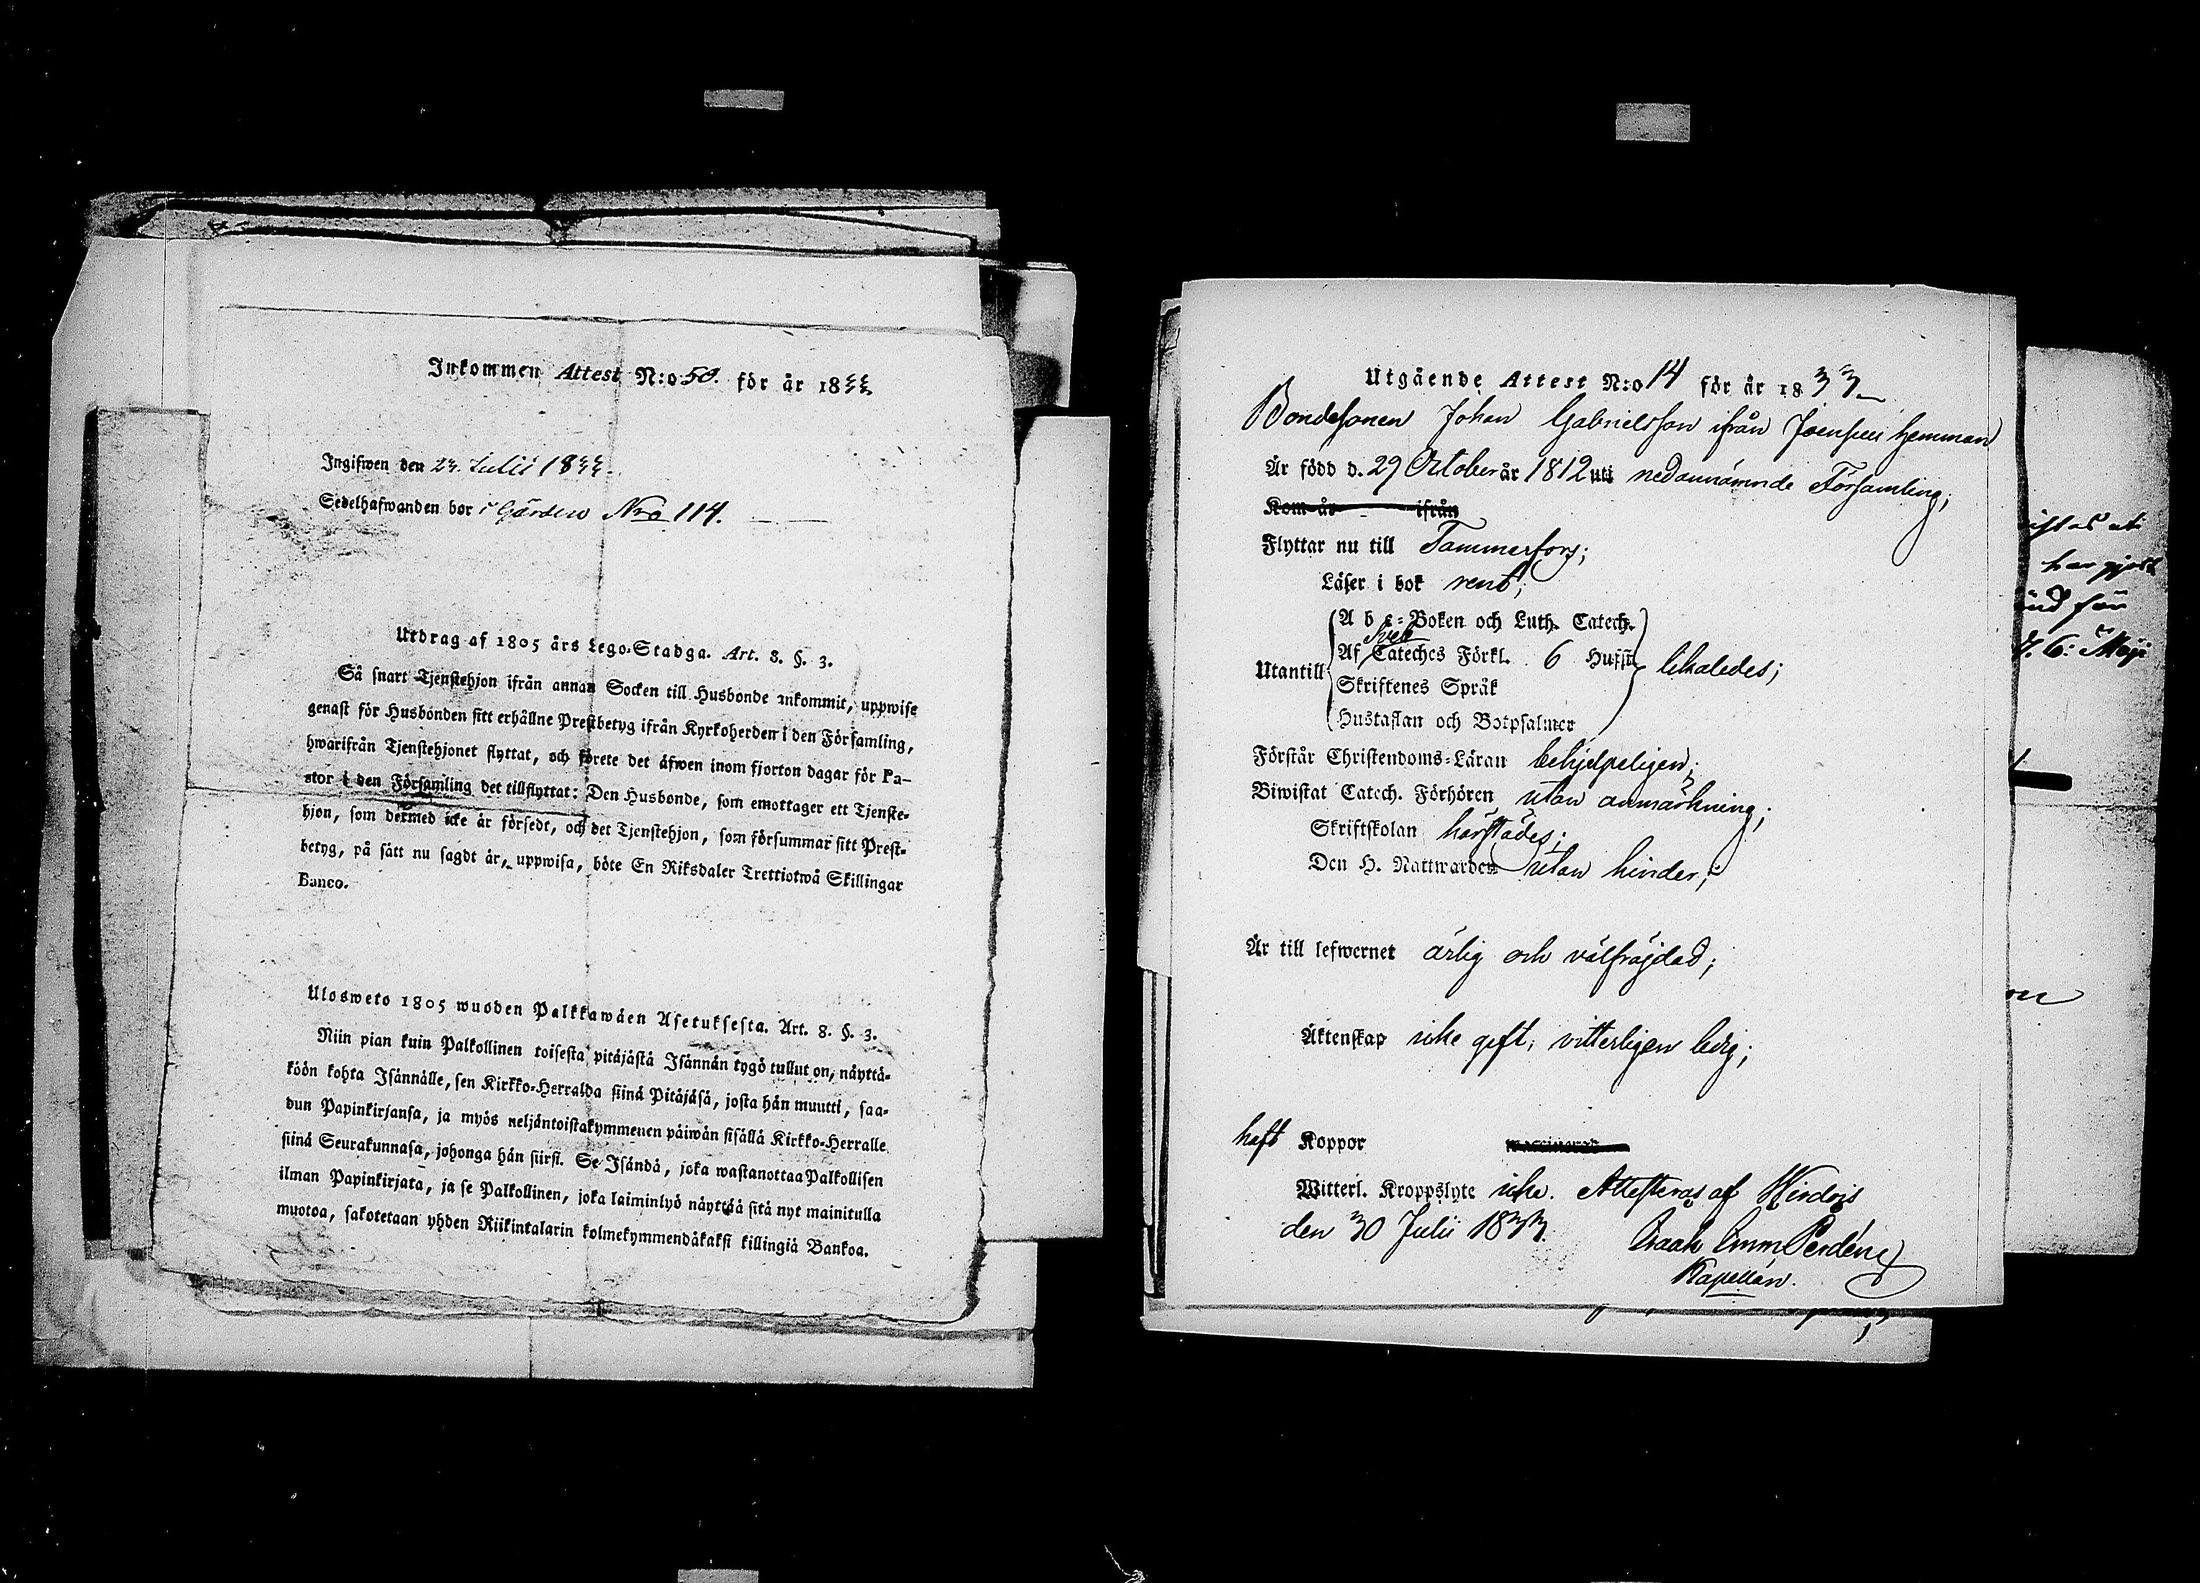 Inkommen Attest N:o 50. för år 1833.
Ingifwen den 23. Julii 1833.
Sedelhafwanden bor i Gården Nro 114.
Utdrag af 1805 års Lego-Stadga. Art. 8. §. 3.
Så snart Tjenstehjon ifrån annan Socken till Husbonde inkommit, uppwise
genast för Husbonden sitt erhållne Prestbetyg ifrån Kyrkoherden i den Församling,
hwarifrån Tjenstehjonet flyttat, och förete det äfwen inom fjorton dagar för Pa-
stor i den Församling det tillflyttat: Den Husbonde, som emottager ett Tjenste-
hjon, som dermed icke är försedt, och det Tjenstehjon, som försummar sitt Prest-
betyg, på sätt nu sagdt är, uppwisa, böte En Riksdaler Trettiotwå Skillingar
Banco.
Ulosweto 1805 wuoden Palkkawäen Asetuksesta. Art. 8. §. 3.
Niin pian kuin Palkollinen toisesta pitäjästä Isännän tygö tullut on, näyttä-
köön kohta Isännälle, sen Kirkko-Herralda siinä Pitäjäsä, josta hän muutti, saa-
dun Papinkirjansa, ja myös neljäntoistakymmenen päiwän sisällä Kirkko-Herralle
siinä Seurakunnasa, johonga hän siirsi. Se Isändä, joka wastanottaa Palkollisen
ilman Papinkirjata, ja se Palkollinen, joka laiminlyö näyttää sitä nyt mainitulla
muotoa, sakotetaan yhden Riikintalarin kolmekymmendäkaksi killingiä Bankoa.
Utgående Attest N:o 14 för år 1833
Bondesonen Johan Gabrielsson ifrån Joensuu hemman
Är född d. 29 October år 1812 uti nedannämnde Församling;
Kom år ifrån
Flyttar nu till Tammerfors;
Läser i bok rent;
A b c-Boken och Luth. Catech.
Sveb
Af Cateches Förkl. 6 Hufst
Utantill likaledes;
Skriftenes Språk
Hustaflan och Botpsalmer
Förstår Christendoms-Läran behjelpeligen;
Biwistat Catech. Förhören utan anmärkning;
Skriftskolan härstädes;
Den H. Nattwarden utan hinder;
Är till lefwernet ärlig och välfräjdad;
Äktenskap icke gift, vitterligen ledig;
haft Koppor
Witterl. Kroppslyte icke. Attesteras af Virdois
den 30 Julii 1833. Isaak Emm Perdén
Kapellan.
har gjort
6: Maji